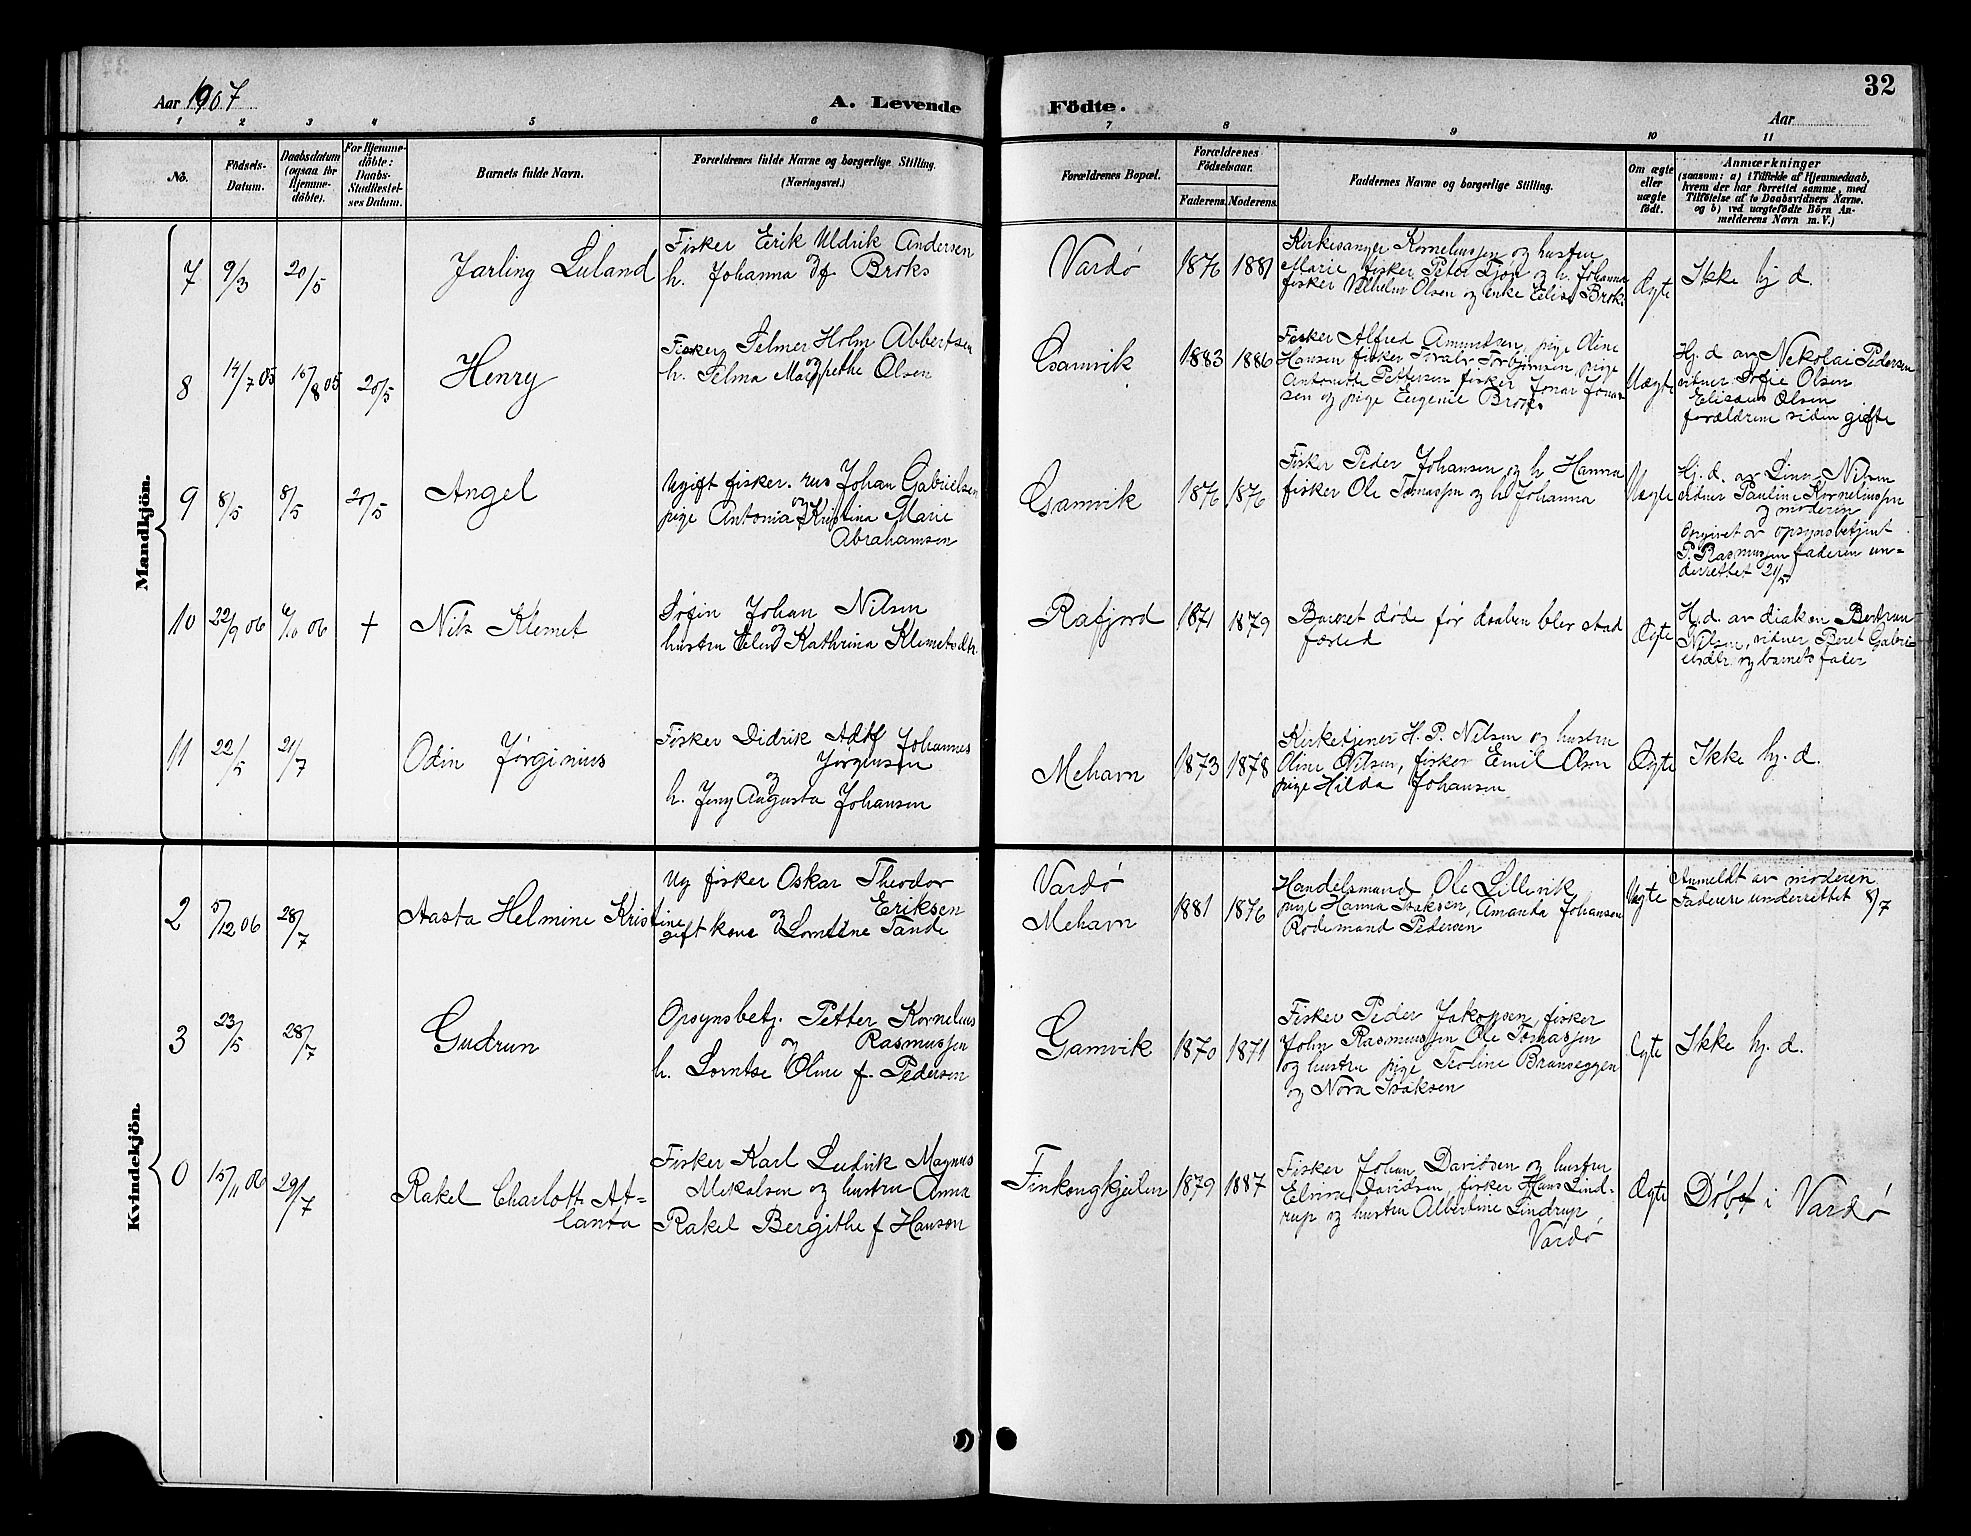 32
Aar 1907
A. Levende Födte.
Aar
1 2 3 4 5 6 7 8 9 10 11
No.
Födsels-
Datum.
Daabsdatum
(ogsaa for
Hjemme-
döbte).
For Hjemme-
döbte:
Daabs-
Stadfæstel-
ses Datum.
Barnets fulde Navn.
Forældrenes fulde Navne og borgerlige Stilling.
(Næringsvei.)
Forældrenes Bopæl.
Forældrenes
Födselsaar.
Faderens. Moderens.
Faddernes Navne og borgerlige Stilling.
Om ægte
eller
uægte
födt.
Anmærkninger
(saasom: a) i Tilfælde af Hjemmedaab,
hvem der har forrettet samme, med
Tilföielse af to Daabsvidners Navne.
og b) ved uægtefödte Börn An-
melderens Navn m. V.)
Mandkjön.
7 9/3 20/5
Jarling Luland
Fisker Erik Uldrik Andersen
h. Johanna f Broks
Vardø
1876 1881
Kirkesanger Korneliussen og hustru
Marie fisker Peter og h. Johanna
fisker Vilhelm Olsen og enke Elise Broks
Ægte
Ikke hj d.
8 14/7 05 15/8 05 20/5
Henry
Fisker Selmer Holm Abbertsen
og
h. Selma Margrethe Olsen
Gamvik
1883 1886
Fisker Alfred Amundsen, pige Oline
Hansen fisker Torbjørnsen, pige
Antonette Pettersen fisker Jonar Jonas-
sen og pige Eugenie Broks
Uægte
Hj. d av Nekolai Pedersen
vitner Sofie Olsen
Elisæus Olsen
forældrene siden gifte
9 8/5 8/5 20/5
Angel
Ugift fisker. rus Johan Gabrielsen
og
pige Antonia Kristina Marie
Abrahamsen
Gamvik
1876 1876
Fisker Peder Johansen og h Hanna
fisker Ole Tomassen og h. Johanna
Uægte
Hj. d. av Lina Nilsen
vidner Pauline Korneliussen
og moderen
Opgivet av opsynsbetjent
P. Rasmussen faderen un-
derrettet 21/5
10 22/9 06 6/10 06 +
Nils Klemet
Søfin Johan Nilsen
og
hustru Elen Kathrina Klemetsdtr.
Rafjord
1871 1879
Barnet døde før daaben blev stad
fæsted
Ægte
H. d. av diakon Bertran
Nilsen, vidner Beret Gabri-
elsdtr. og barnets fader
11 22/5 21/7
Odin Jørginius
Fisker Didrik Adolf Johannes
Jørgensen
og
h. Jeny Augusta Johansen
Mehavn
1873 1878
Kirketjener H. P. Nilsen og hustru
Oline Nilsen, fisker Emil Olsen
pige Hilda Johansen
Ægte
Ikke hj. d.
Kvindekjön.
2 5/12 06 28/7
Aasta Helmine Kristine
Ug fisker Oskar Theodor
Eriksen
gift kone og Lorntine Tande
Vardø
Mehavn
1881 1876
Handelsmand Ole Lillevik
pige Hanna Isaksen, Amanda Johansen
Rodemand Pedersen
Uægte
Anmeldt av moderen
Faderen underrettet 8/7
3 23/5 28/7
Gudrun
Opsynsbetj. Petter Kornelius
og Rasmussen
h. Lorntse Oline f. Pedersen
Gamvik
1870 1871
Fisker Peder Jakopsen, fisker
John Rasmussen Ole Tomassen
og hustru pige Teoline Branseggen
og Nora Isaksen
Ægte
Ikke hj. d.
0 15/11 06 29/7
Rakel Charlotte At-
lanta
Fisker Karl Ludvik Magnus
Mikalsen og hustru Anna
Rakel Bergithe f Hanson
Finkongkjeilen
1879 1887
Fisker Johan Davidsen og hustru
Elvira Davidsen, fisker Hans Lind-
rup og hustru Albertine Lindrup,
Vardø
Ægte
Døbt i Vardø